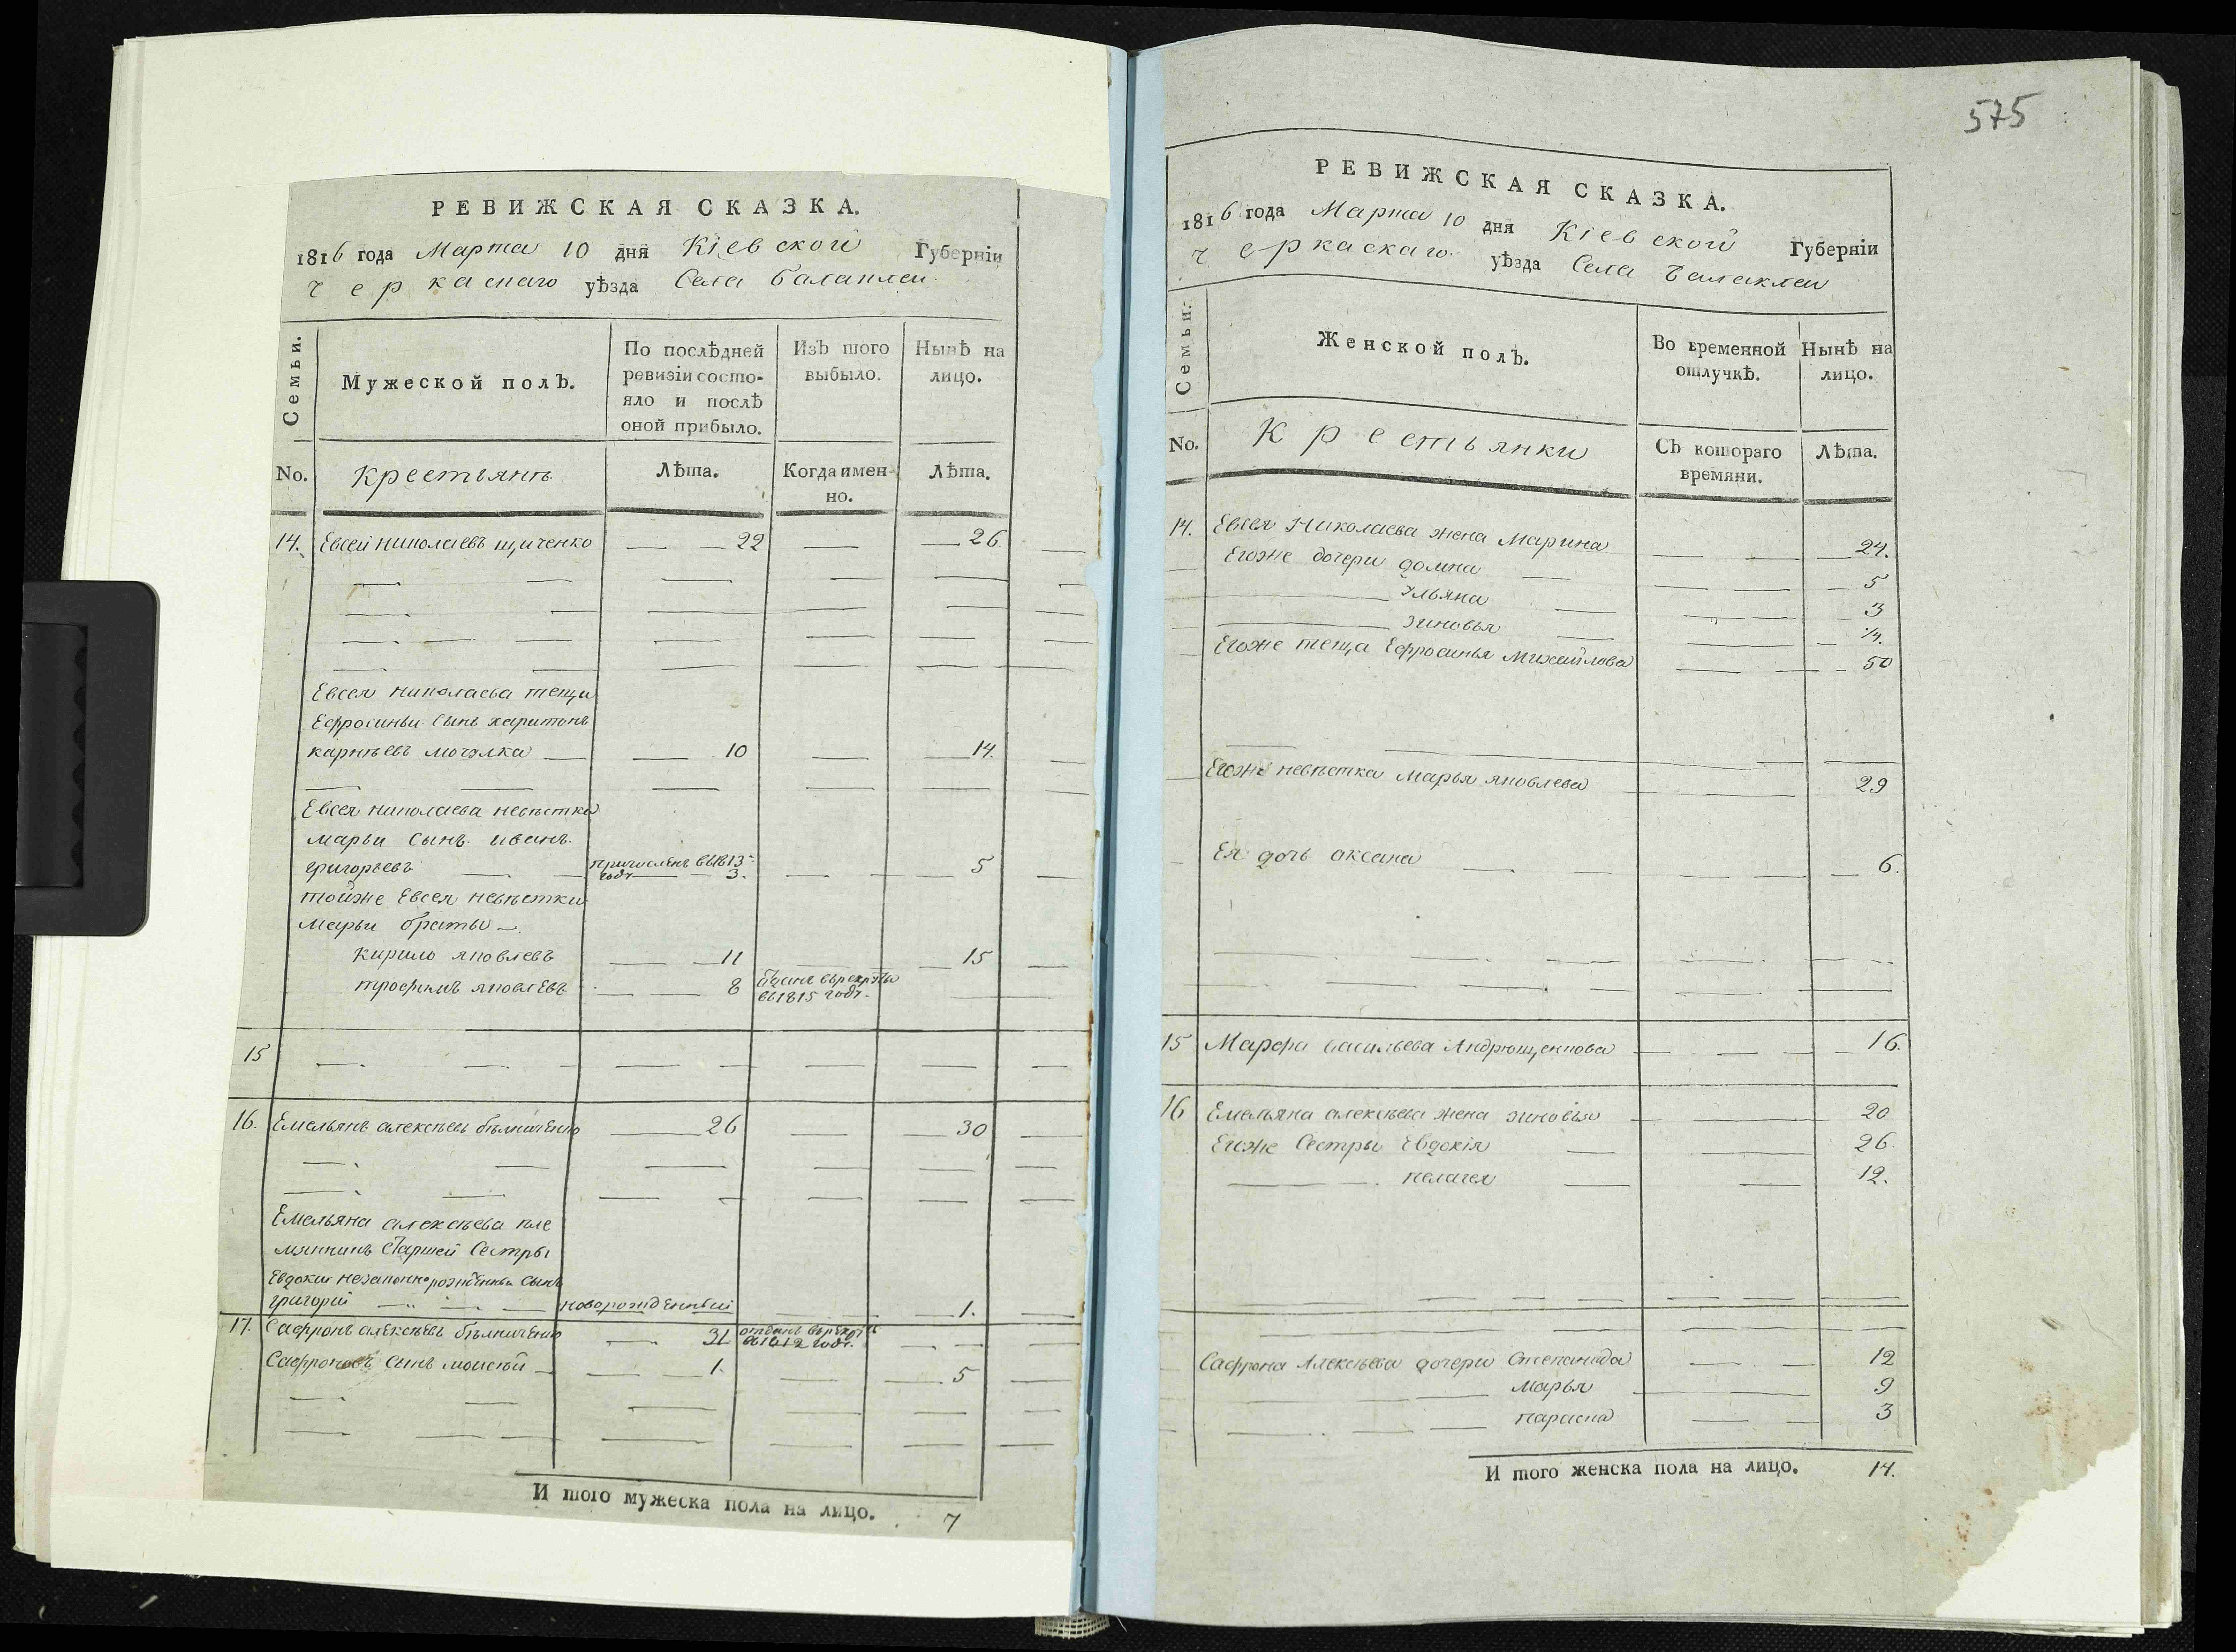 РЕВИЖСКАЯ СКАЗКА.
1816 года Марта 10 дня Кіевской Губерніи
Черкаскаго уѣзда Села Балаклеи
Семьи.
Мужеской полъ.
По послѣдней ревизіи состо-
яло и послѣ
оной прибыло.
Изъ того
выбыло.
Нынѣ на
лицо.
No.
Крестьянъ
Лѣта.
Когда имен-
но.
Лѣта.
14. Евсей Николаевъ щиченко 22 26.
Евсея николаева тещи
Ефросиньи сынъ харитонъ
карнѣевъ мочалка 10 14.
Евсея николаева невѣстки
марьи сынъ иванъ
григорьевъ причисленъ въ 1813
году 3. 5
тойже Евсея невѣстки
марьи браты
кирило яковлевъ 11 15
трофимъ яковлевъ 8 въ рекруты
въ 1815 году.
15
16. Емельянъ алексѣевъ бѣлниченко 26 30
Емельяна алексѣева пле
мянникъ старшей сестры
Евдокии незаконнорожденны сынъ
григорій новорожденный 1.
17. Сафронъ алексѣевъ бѣлниченко 31 отданъ въ рекруты
въ 1812 году.
Сафроновъ сынъ моисѣй 1. 5
И того мужеска пола на лицо. 7
575
РЕВИЖСКАЯ СКАЗКА.
1816 года Марта 10 дня Кіевской Губерніи
Черкаскаго уѣзда Села Балаклеи
Семьи.
Женской полъ.
Во временной
отлучкѣ.
Нынѣ на
лицо.
No.
Крестьянки
Съ котораго
времяни.
Лѣта.
14. Евсея Николаева жена Марина 24.
Егоже дочери домна 5
Ульяна 3
зиновья 1/4.
Егоже теща Ефросинья Михайлова 50
Егоже невѣстка Марья яковлева 29
Ея дочь аксана 6.
15 Марфа васильева Андрющенкова 16.
16 Емельяна алексѣева жена зиновья 20
Егоже Сестры Евдокія 26.
пелагея 12.
Сафрона Алексѣева дочери Степанида 12
Марья 9
параска 3
И того женска пола на лицо. 14.